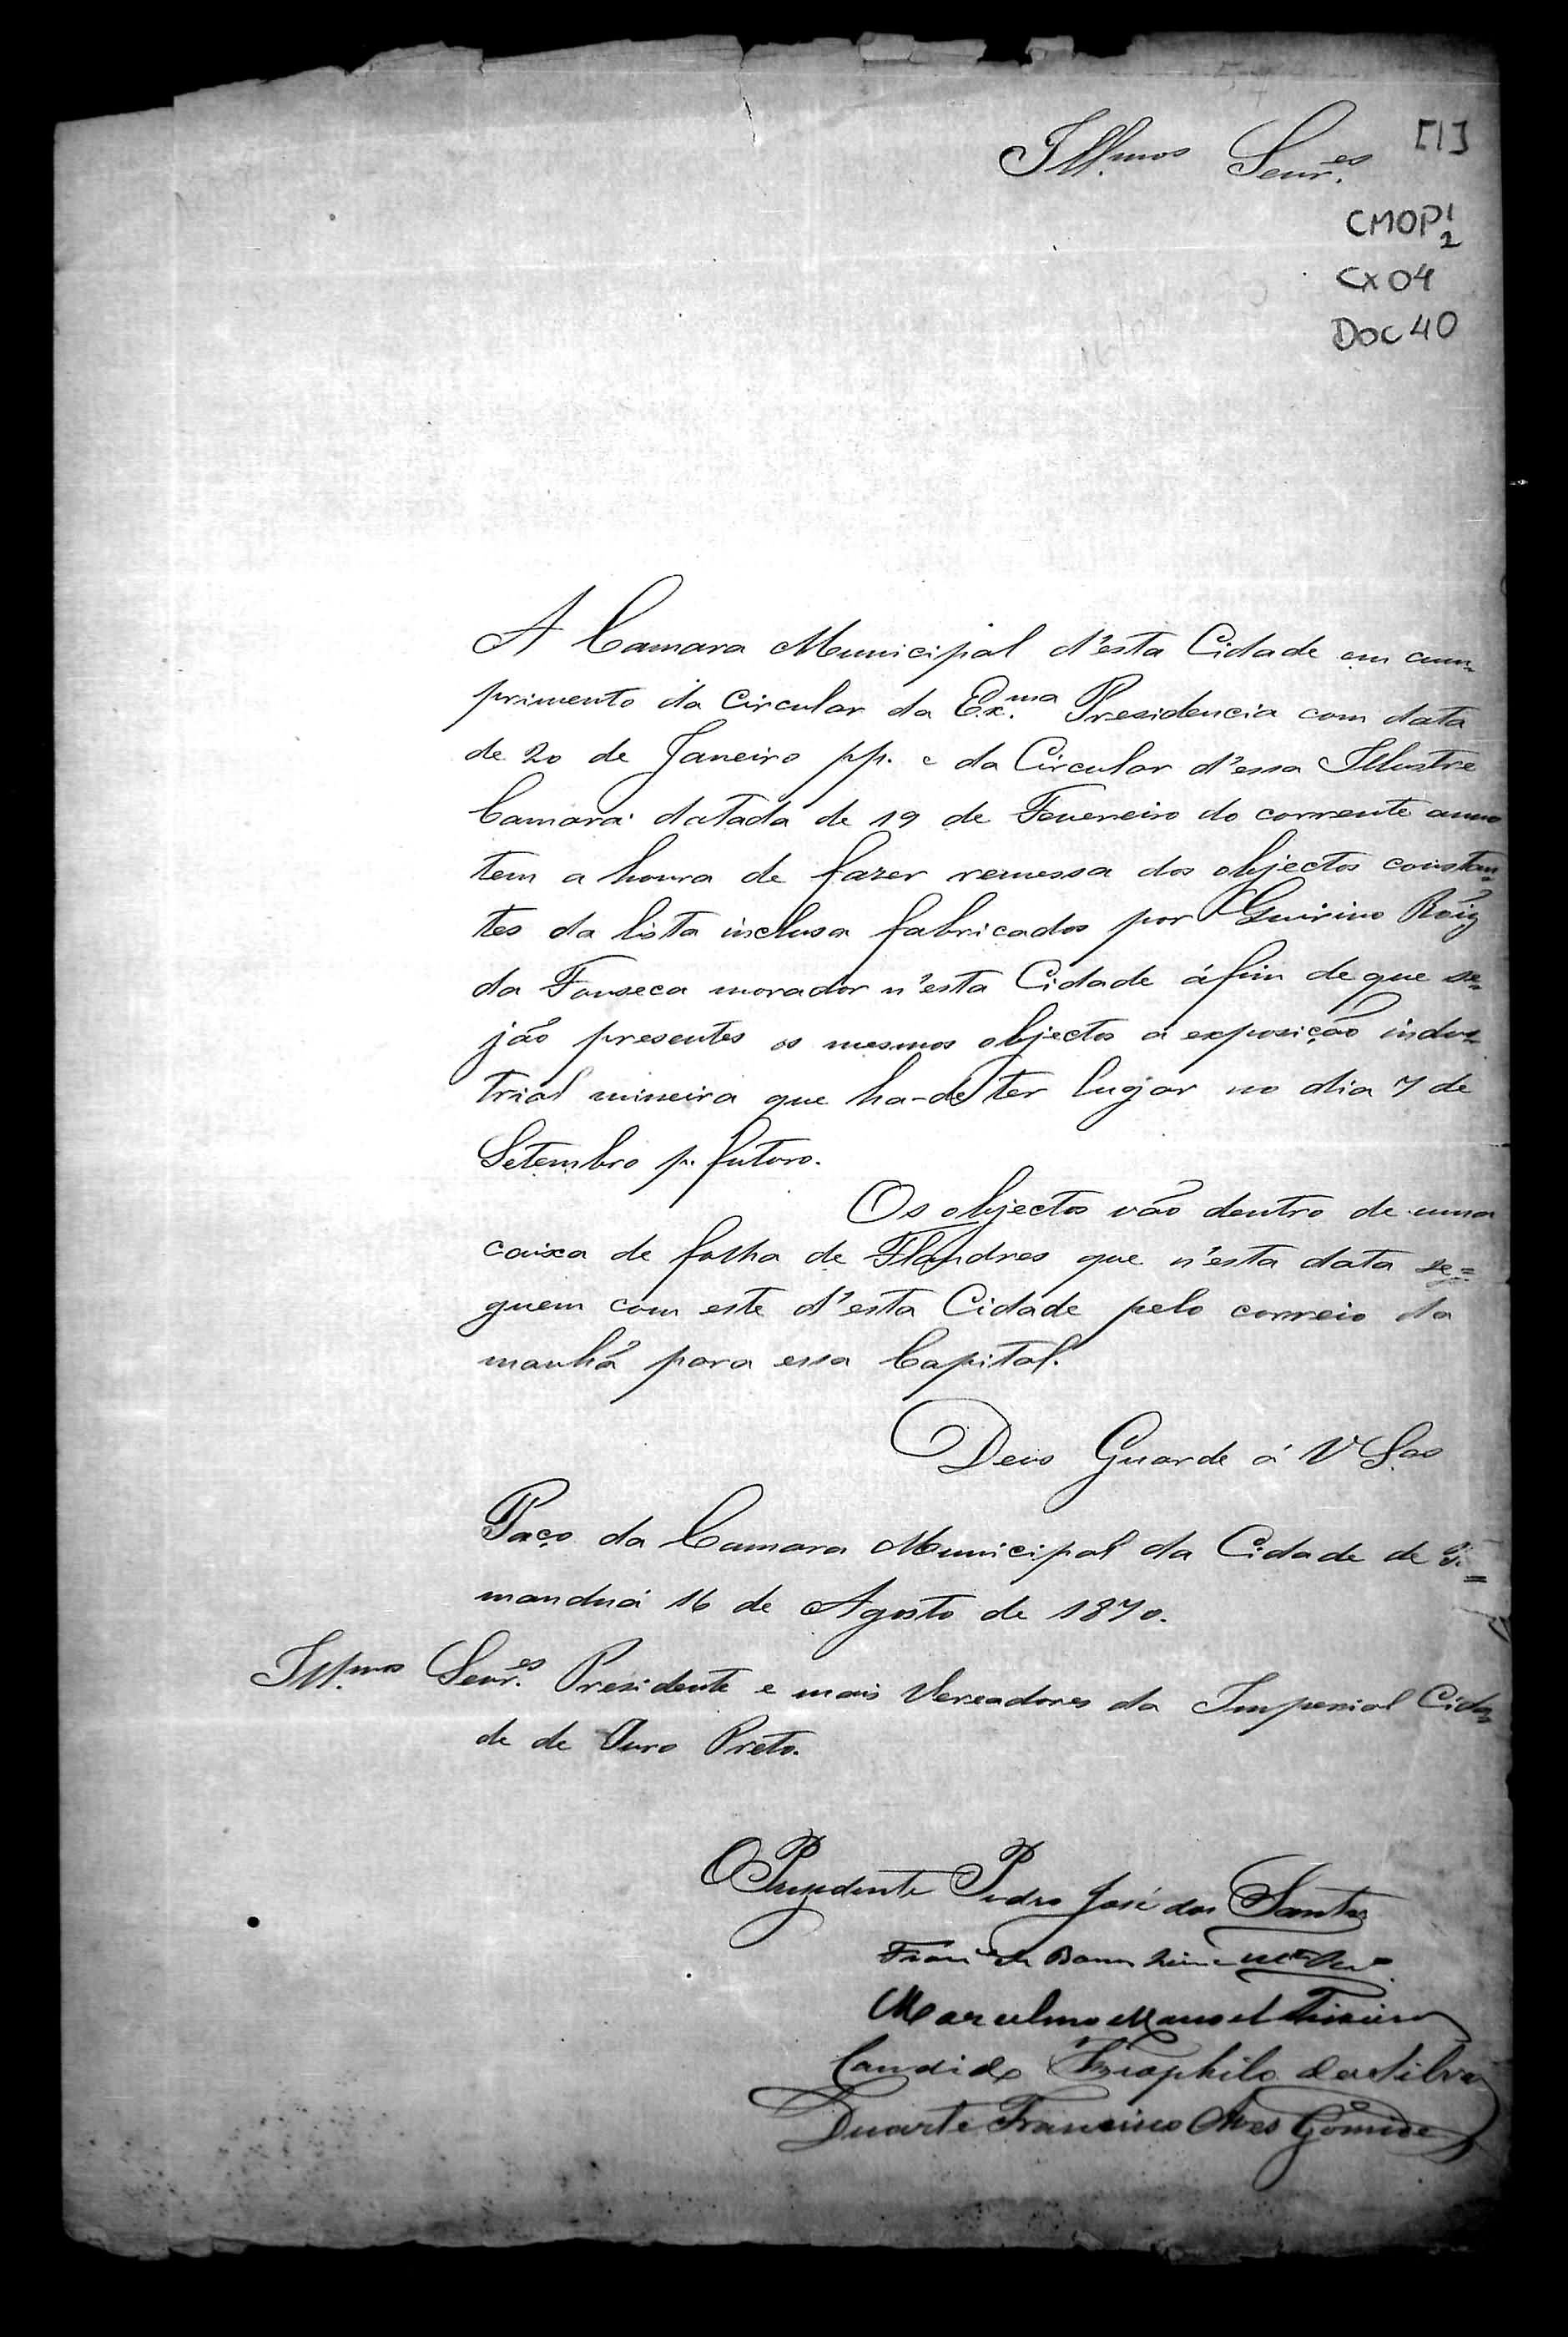 [1]
Ill.mos Senr.es
CMOP 1/2
CX 04
DOC 40
A Camara Municipal d'esta Cidade em cum=
primento da Circular da Ex.ma Presidencia com data
de 20 de Janeiro pp. e da Circular d'essa Illustre
Camara datada de 19 de Fevereiro do corrente anno
tem a honra de fazer remessa dos objectos constan=
tes da lista inclusa fabricados por Quirino Roiz
da Fonseca morador n'esta Cidade áfim de que se=
jão presentes os mesmos objectos a exposição indus=
trial mineira que ha-de ter lugar no dia 7 de
Setembro p. futuro.
Os objectos vão dentro de uma
caixa de folha de Flandres que n'esta data se=
guem com este d'esta Cidade pelo correio da
manhã para essa Capital.
Deus Guarde á V Sas
Paço da Camara Municipal da Cidade de Ta=
manduá 16 de Agosto de 1870.
Ill.mos Senr.es Presidente e mais Vereadores da Imperial Cida=
de de Ouro Preto.
O Presidente Pedro José dos Santos
Marcelino Manoel Teixeira
Candido Theophilo da Silva
Duarte Francisco Alves Gomide